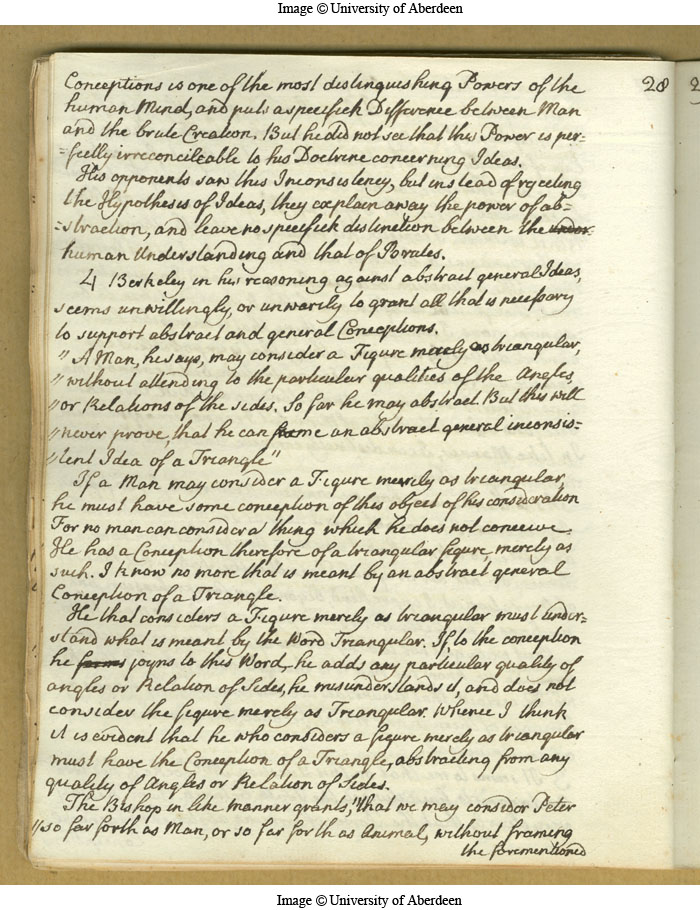 Image © University of Aberdeen
28
Conceptions is one of the most distinguishing Powers of the
human Mind, and puts a specifick Difference between Man
and the brute Creation. But he did not see that this Power is per-
-fectly irreconcileable to his Doctrine concerning Ideas.
His opponents saw this Inconsistency, but instead of rejecting
the Hypothesis of Ideas, they explain away the power of ab-
-straction, and leave no specifick distinction between the under
human Understanding and that of Brutes.
4 Berkeley in his reasoning against abstract general Ideas,
seems unwillingly, or unwarily to grant all that is necessary
to support abstract and general Conceptions.
" A Man, he says, may consider a Figure merely as triangular,
" without attending to the particular qualities of the Angles,
" or Relations of the sides. So far he may abstract. But this will
" never prove, that he can frame an abstract general inconsis-
" tent Idea of a Triangle"
If a Man may consider a Figure merely as triangular,
he must have some conception of this object of his consideration
For no man can consider a thing which he does not conceive.
He has a Conception therefore of a triangular figure, merely as
such. I know no more that is meant by an abstract general
Conception of a Triangle.
He that considers a Figure merely as triangular must under-
stand what is meant by the Word Triangular. If to the conception
he forms joyns to this Word, he adds any particular quality of
angles or Relation of Sides, he misunderstands it, and does not
consider the figure merely as Triangular. Whence I think
it is evident that he who considers a figure merely as triangular
must have the Conception of a Triangle, abstracting from any
quality of Angles or Relation of Sides.
The Bishop in like manner grants, "that we may consider Peter
" so far forth as Man, or so far forth as Animal, without framing
the forementioned
Image © University of Aberdeen